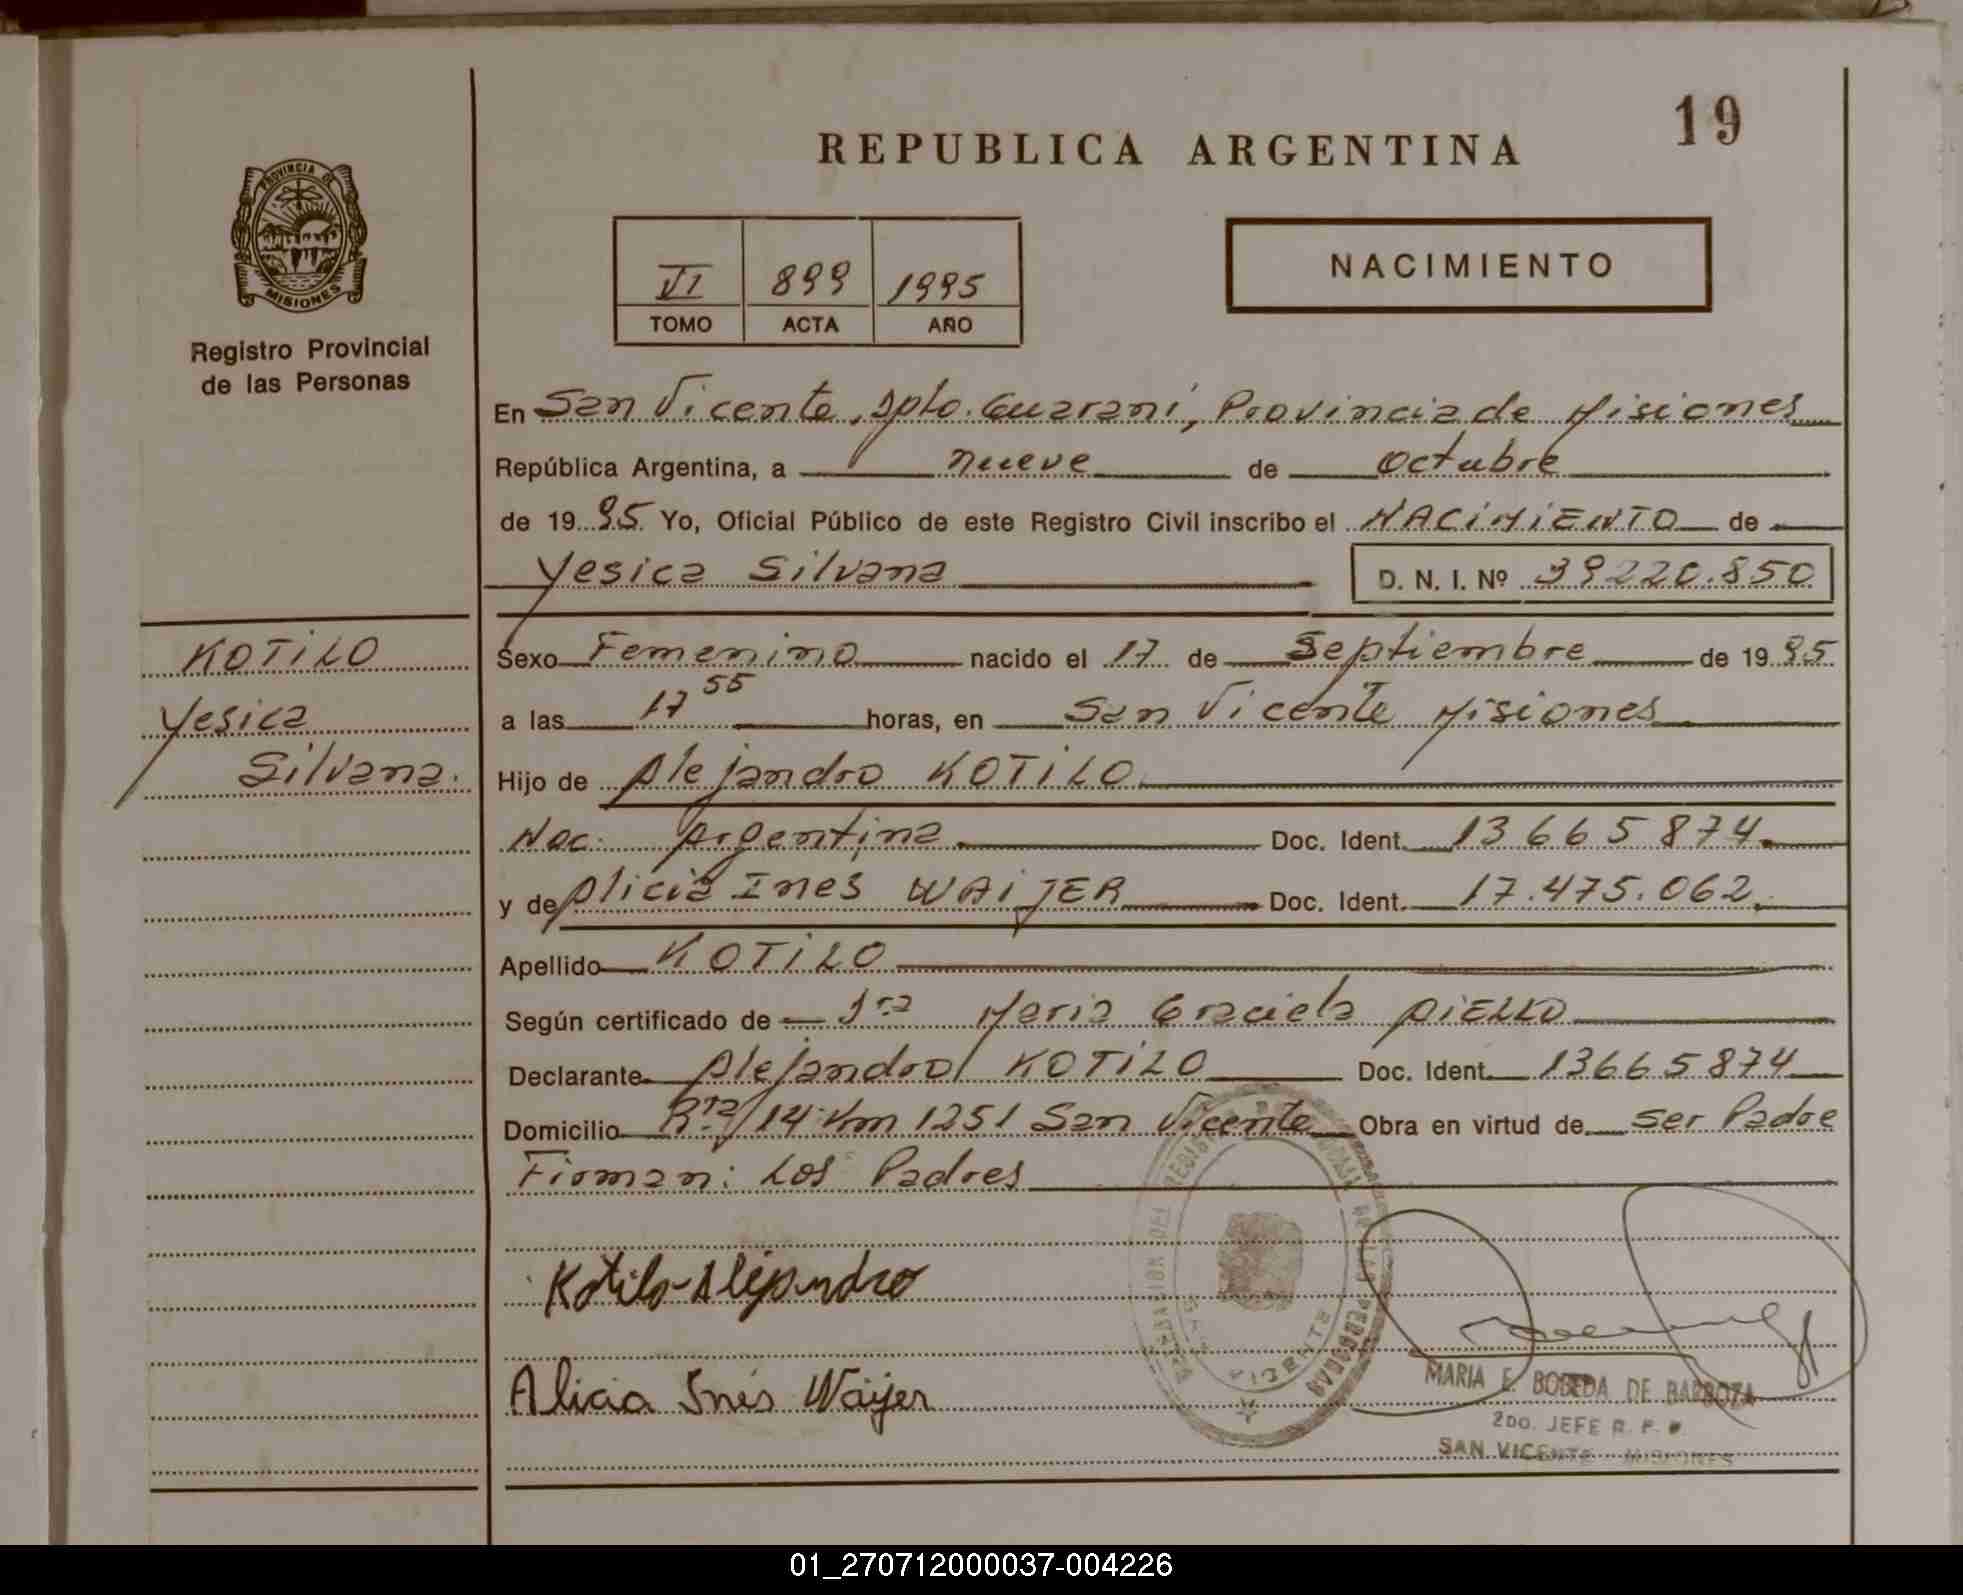 19
REPUBLICA ARGENTINA
PROVINCIA DE
MISIONES
Registro Provincial
de las Personas
VI 899 1995
TOMO ACTA AÑO
NACIMIENTO
En San Vicente, Dpto. Guaraní, Provincia de Misiones
República Argentina, a nueve de octubre
de 1995 Yo, Oficial Público de este Registro Civil inscribo el NACIMIENTO de
Yesica Silvana D. N. I. Nº 39220.850
KOTILO
Yesica
Silvana.
Sexo Femenino nacido el 17 de Septiembre de 1995
a las 17 55 horas, en San Vicente Misiones
Hijo de Alejandro KOTILO
Nac. Argentina. Doc. Ident. 13665874.
y de Alicia Ines WAIJER Doc. Ident. 17.475.062.
Apellido KOTILO
Según certificado de Dra Maria Graciela AIELLO
Declarante Alejandro KOTILO Doc. Ident. 13665874
Domicilio Rta/14 Km 1251 San Vicente Obra en virtud de ser Padre
Firman: Los Padres
Kotilo-Alejandro
Alicia Inés Waijer
MARIA E. BOBEDA DE BARBOZA
2DO. JEFE R. P.
SAN VICENTE MISIONES
01_270712000037-004226